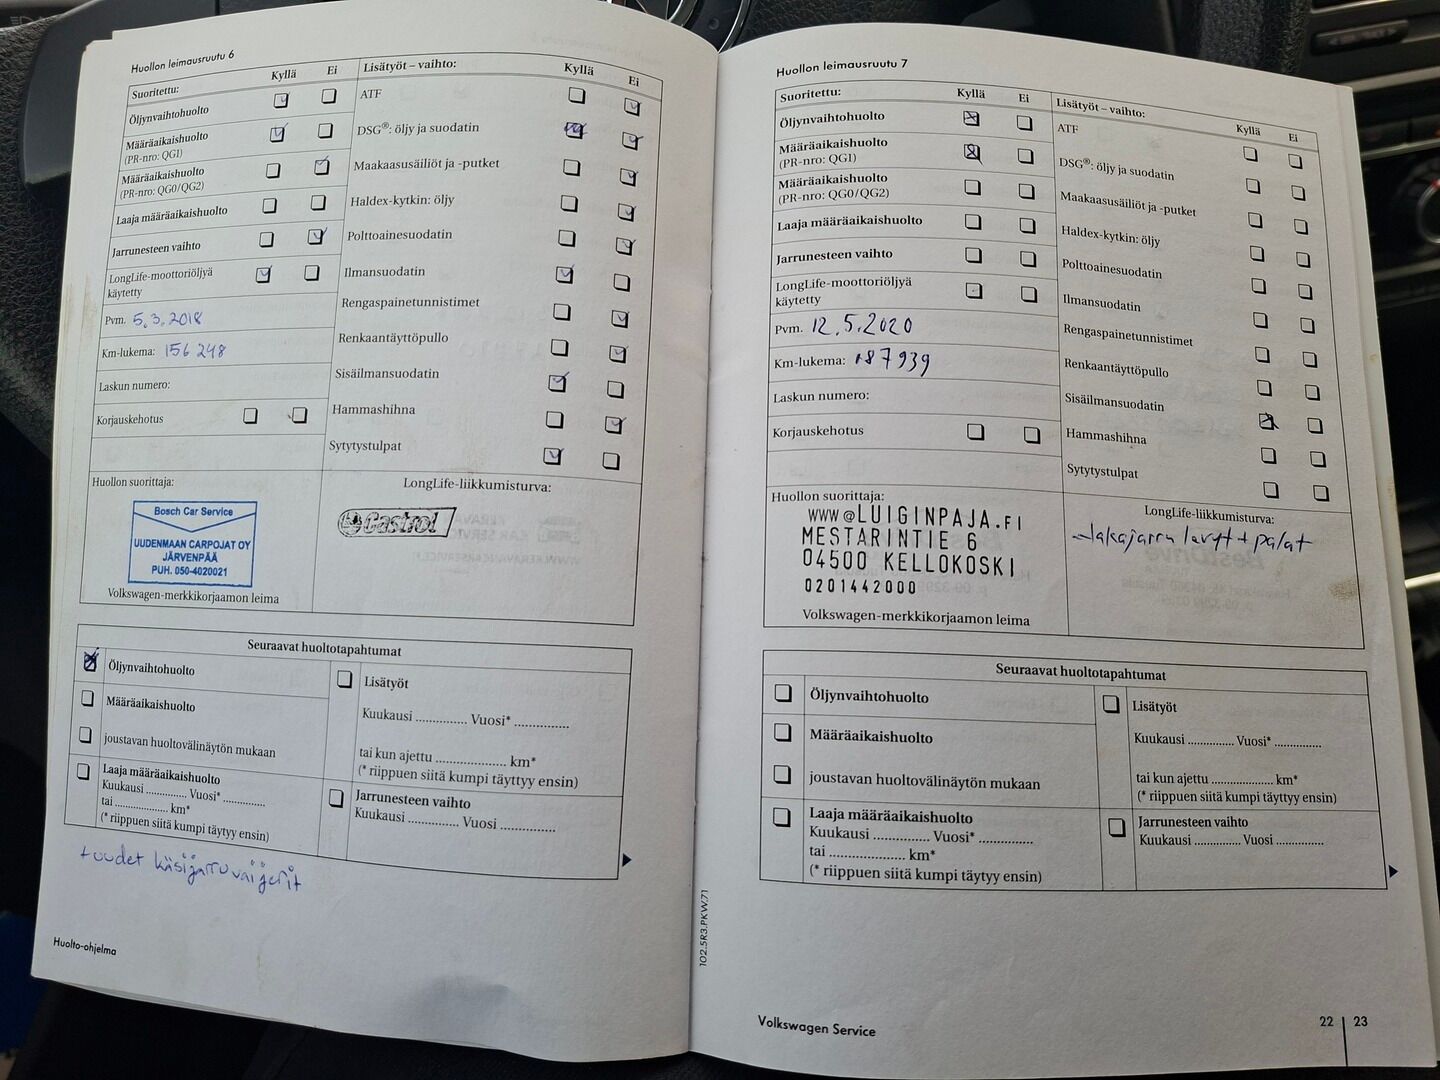 Huollon leimausruutu 6
Suoritettu: Kyllä Ei
Öljynvaihtohuolto
Määräaikaishuolto
(PR-nro: QG1)
Määräaikaishuolto
(PR-nro: QG0/QG2)
Laaja määräaikaishuolto
Jarrunesteen vaihto
LongLife-moottoriöljyä
käytetty
Pvm. 5.3.2018
Km-lukema: 156 248
Laskun numero:
Korjauskehotus
Lisätyöt – vaihto: Kyllä Ei
ATF
DSG®: öljy ja suodatin
Maakaasusäiliöt ja -putket
Haldex-kytkin: öljy
Polttoainesuodatin
Ilmansuodatin
Rengaspainetunnistimet
Renkaantäyttöpullo
Sisäilmansuodatin
Hammashihna
Sytytystulpat
Huollon suorittaja:
Bosch Car Service
UUDENMAAN CARPOJAT OY
JÄRVENPÄÄ
PUH. 050-4020021
Volkswagen-merkkikorjaamon leima
LongLife-liikkumisturva:
Castrol
Seuraavat huoltotapahtumat
Öljynvaihtohuolto
Määräaikaishuolto
joustavan huoltovälinäytön mukaan
Laaja määräaikaishuolto
Kuukausi ............... Vuosi* ...............
tai .................... km*
(* riippuen siitä kumpi täyttyy ensin)
Lisätyöt
Kuukausi ............... Vuosi* ...............
tai kun ajettu .................... km*
(* riippuen siitä kumpi täyttyy ensin)
Jarrunesteen vaihto
Kuukausi ............... Vuosi ...............
+ uudet käsijarruvaijerit
Huolto-ohjelma
102.5R3.PKW.71
Huollon leimausruutu 7
Suoritettu: Kyllä Ei
Öljynvaihtohuolto
Määräaikaishuolto
(PR-nro: QG1)
Määräaikaishuolto
(PR-nro: QG0/QG2)
Laaja määräaikaishuolto
Jarrunesteen vaihto
LongLife-moottoriöljyä
käytetty
Pvm. 12.5.2020
Km-lukema: 187939
Laskun numero:
Korjauskehotus
Lisätyöt – vaihto: Kyllä Ei
ATF
DSG®: öljy ja suodatin
Maakaasusäiliöt ja -putket
Haldex-kytkin: öljy
Polttoainesuodatin
Ilmansuodatin
Rengaspainetunnistimet
Renkaantäyttöpullo
Sisäilmansuodatin
Hammashihna
Sytytystulpat
Huollon suorittaja:
www@LUIGINPAJA.FI
MESTARINTIE 6
04500 KELLOKOSKI
0201442000
Volkswagen-merkkikorjaamon leima
LongLife-liikkumisturva:
-takajarru levyt + palat
Seuraavat huoltotapahtumat
Öljynvaihtohuolto
Määräaikaishuolto
joustavan huoltovälinäytön mukaan
Laaja määräaikaishuolto
Kuukausi ............... Vuosi* ...............
tai .................... km*
(* riippuen siitä kumpi täyttyy ensin)
Lisätyöt
Kuukausi ............... Vuosi* ...............
tai kun ajettu .................... km*
(* riippuen siitä kumpi täyttyy ensin)
Jarrunesteen vaihto
Kuukausi ............... Vuosi ...............
Volkswagen Service
22 | 23